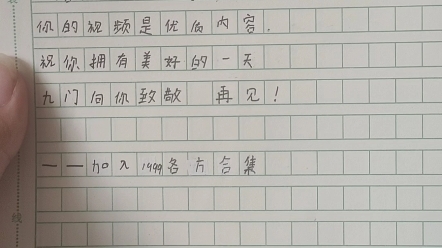 你的视频是优质内容.
祝你拥有美好的一天
九门向你致敬 再见!
——加入1999各方合集
线